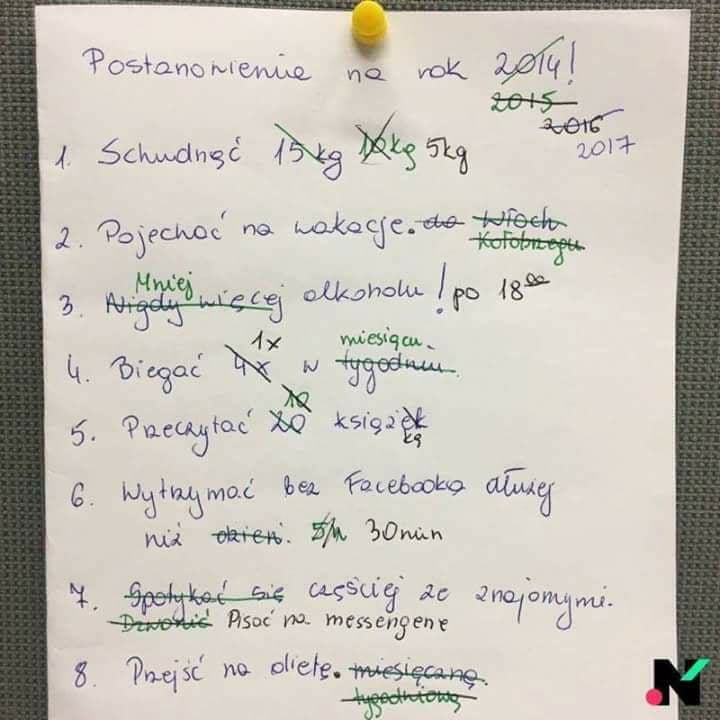 Postanowienie na rok 2014!
2015
2016
2017
1. Schudnąć 15kg 10kg 5kg
2. Pojechać na wakacje. do Włoch
Kołobrzegu
Mniej
3. Nigdy więcej alkoholu! po 18⁰⁰
1x miesiącu.
4. Biegać 4x w tygodniu.
10
5. Przeczytać 20 książek
kę
6. Wytrzymać bez Facebooka dłużej
niż dzień. 5h 30min
7. Spotykać się częściej ze znajomymi.
Dzwonić Pisać na messengerze
8. Przejść na dietę. miesięczną.
tygodniową
N